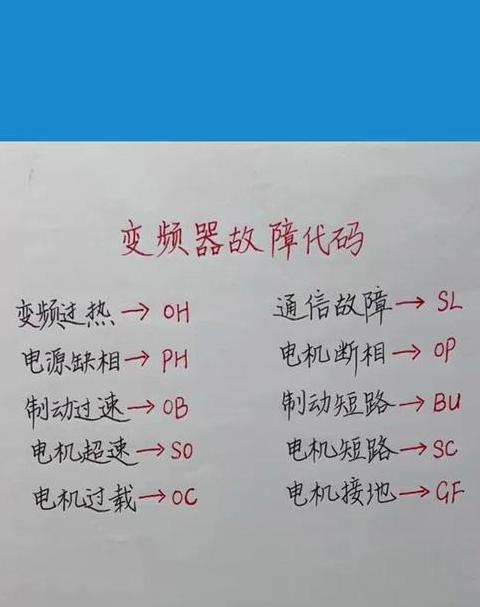 变频器故障代码
变频过热→OH
电源缺相→PH
制动过速→OB
电机超速→SO
电机过载→OC
通信故障→SL
电机断相→OP
制动短路→BU
电机短路→SC
电机接地→GF